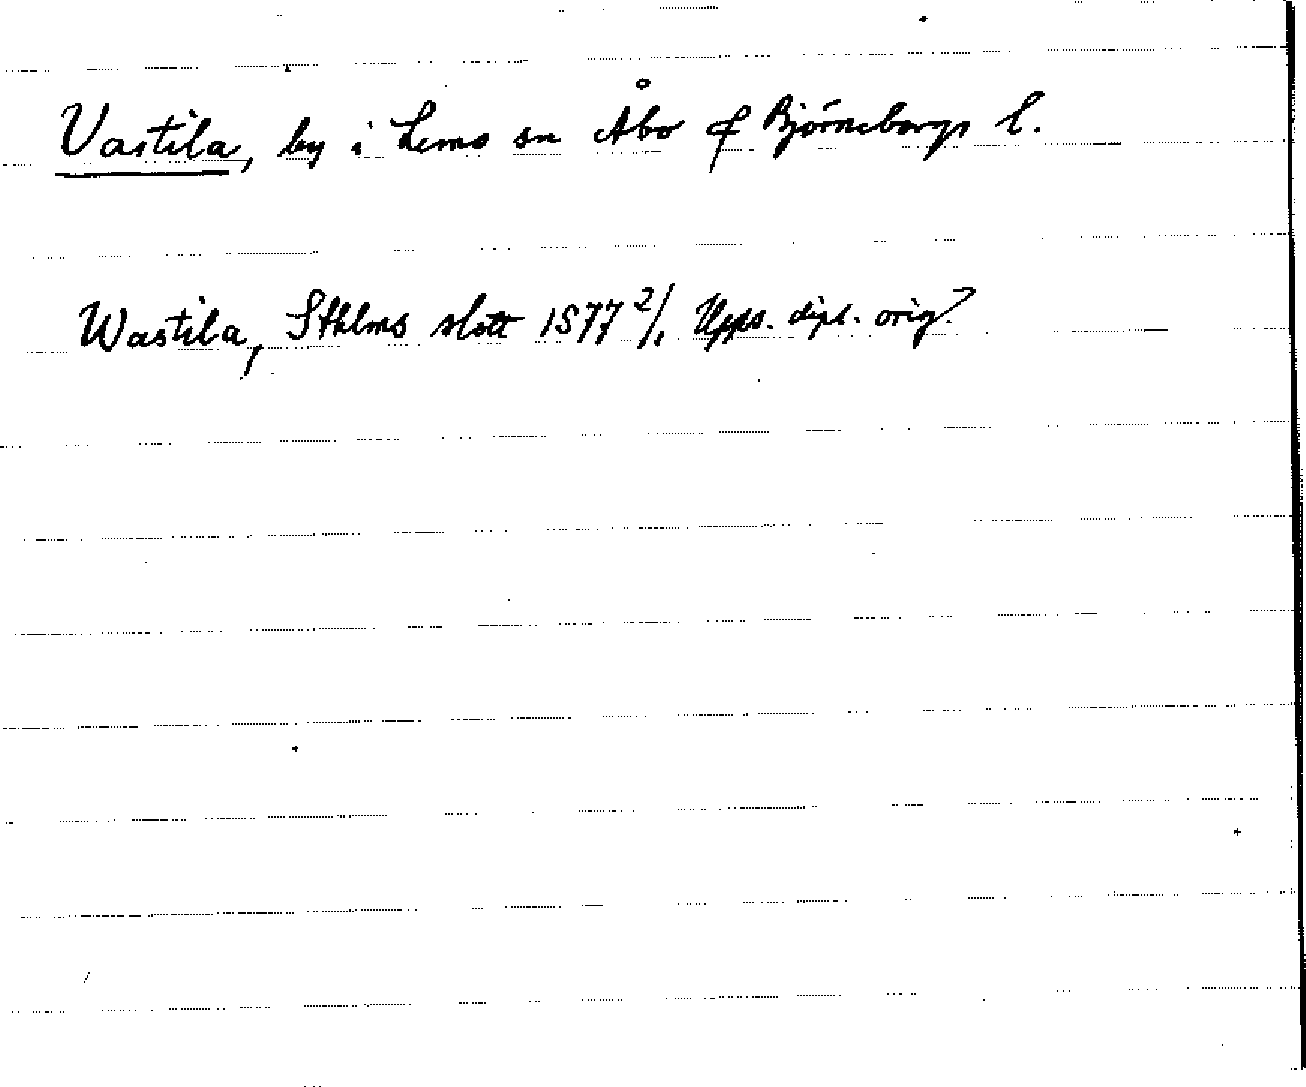 Vastila, by i Lemo sn Åbo o Björneborgs l.
Wastila, Sthlms slott 1577 2/1 Upps. dipl. orig?